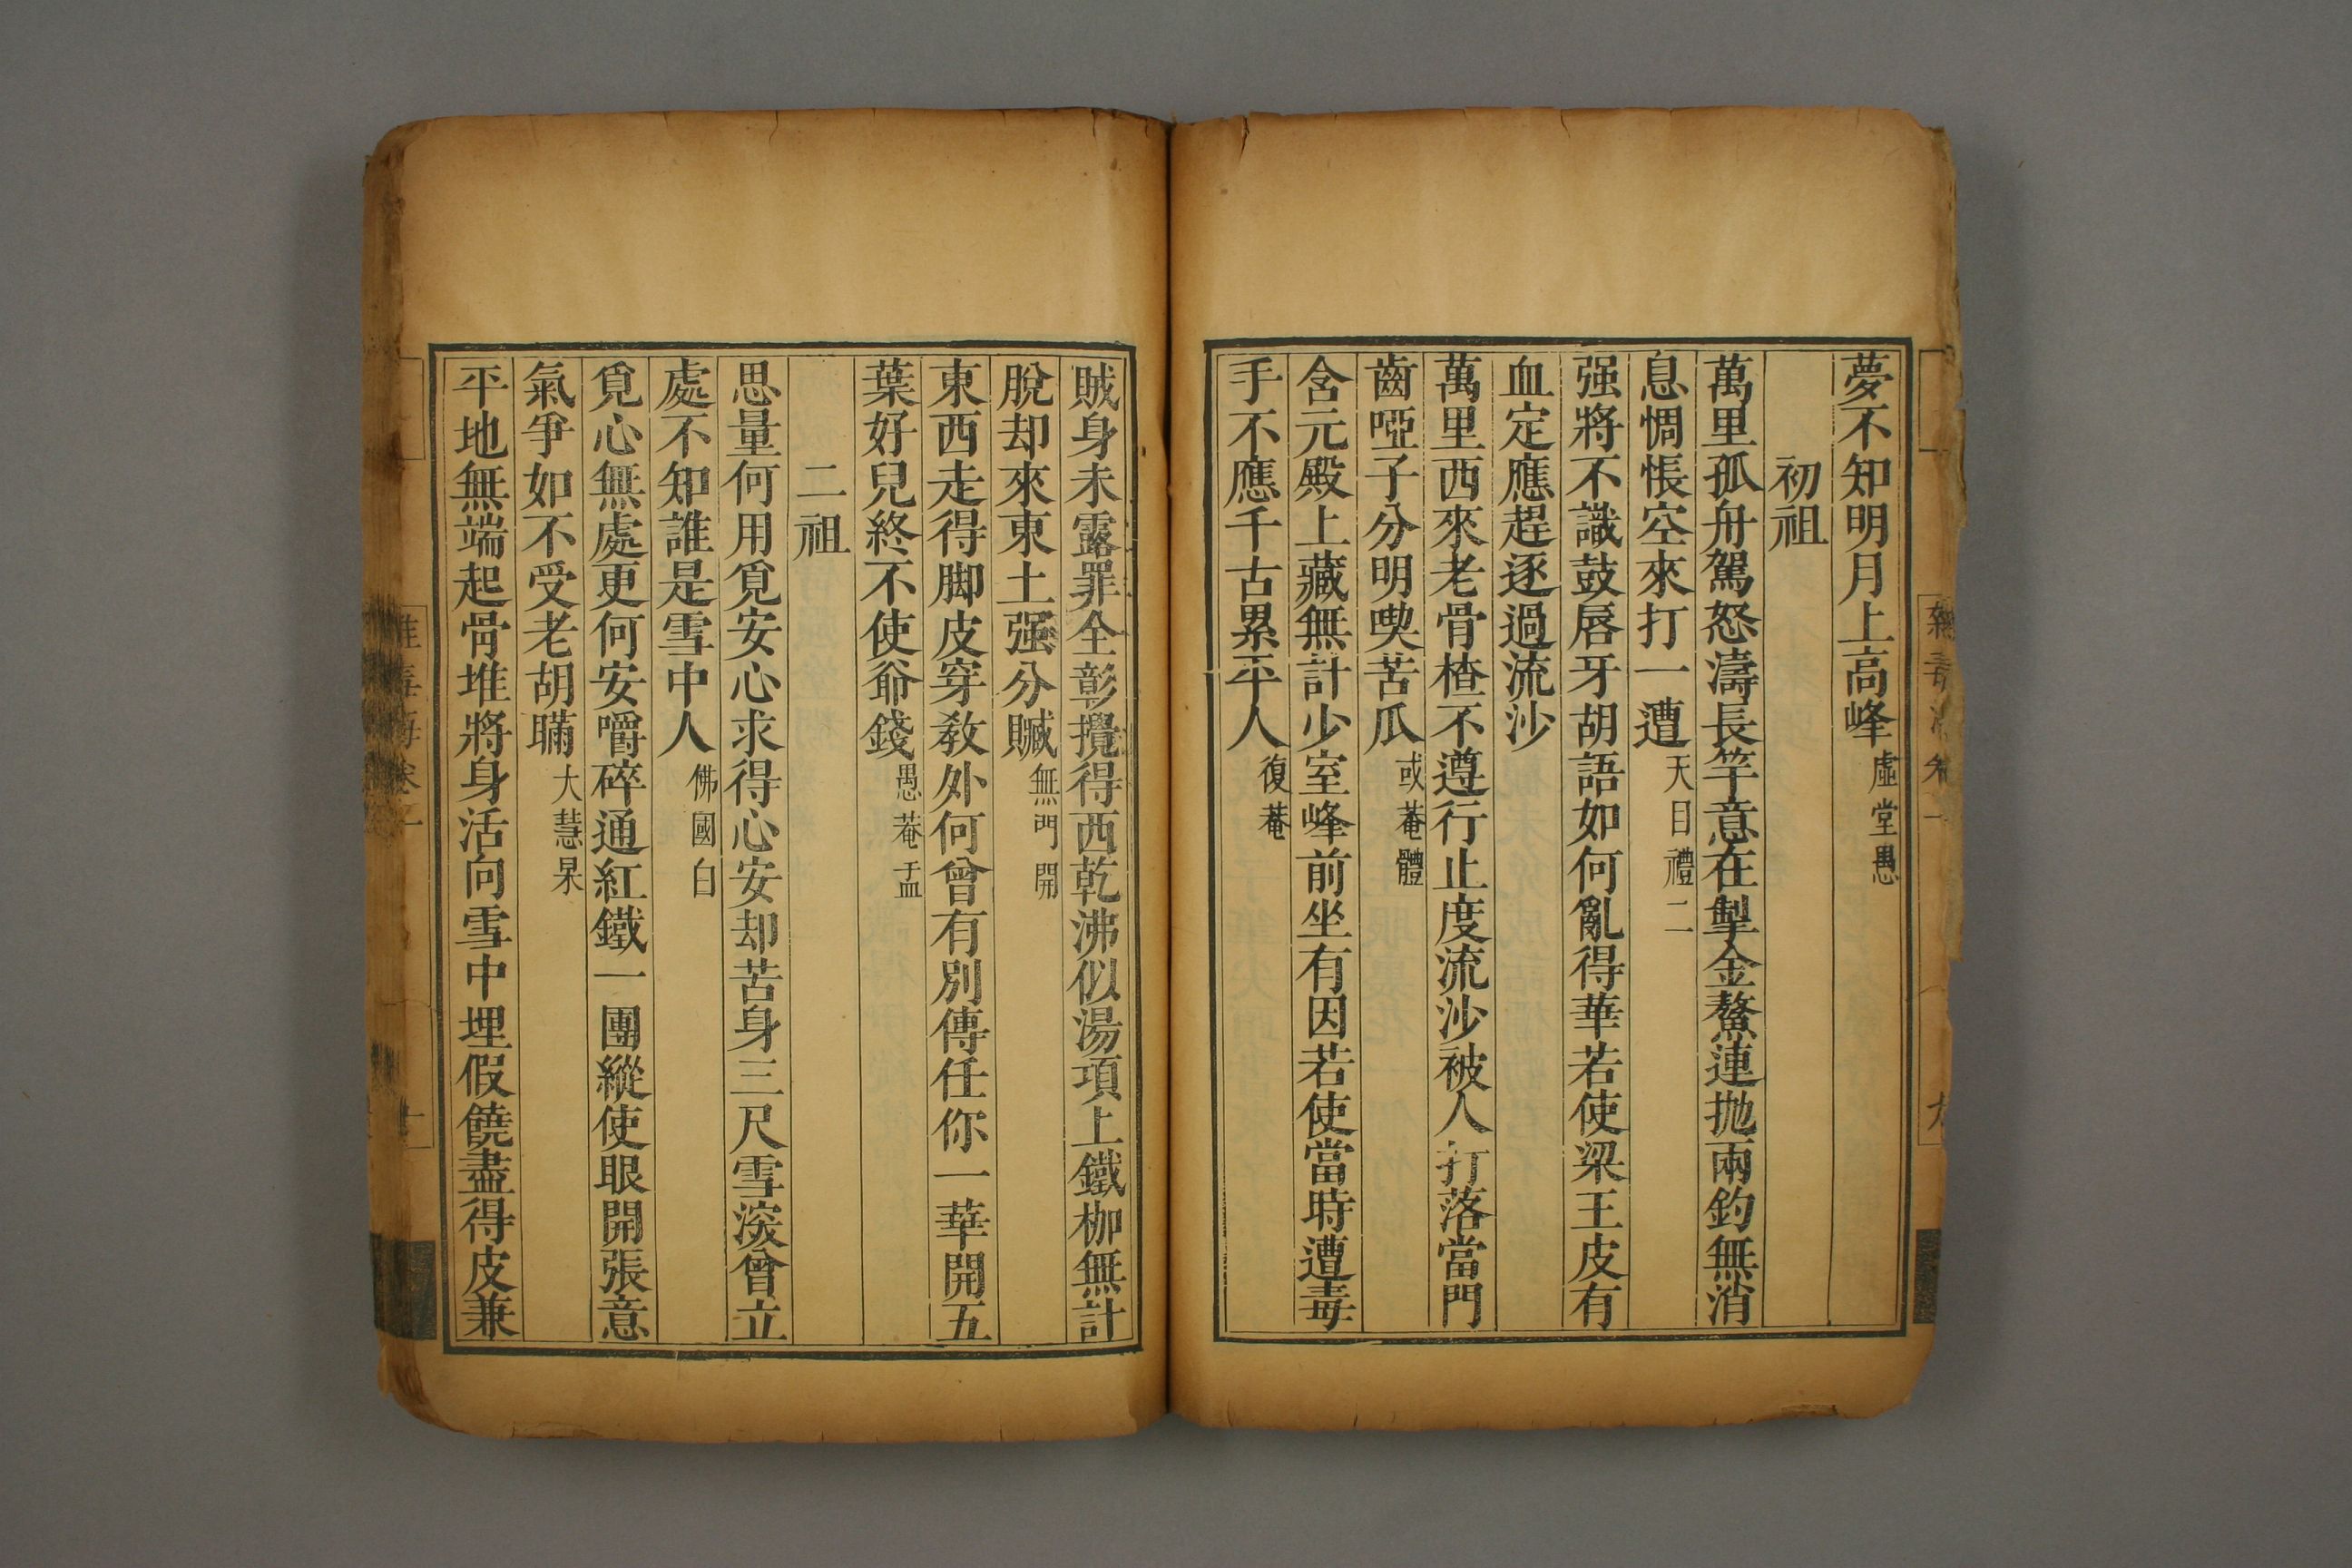 夢不知明月上高峰虛堂愚
初祖
萬里孤舟駕怒濤長竿意在掣金鰲連拋兩釣無消
息惆悵空來打一遭天目禮二
强將不識鼓唇牙胡語如何亂得華若使梁王皮有
血定應趕逐過流沙
萬里西來老骨楂不遵行止度流沙被人打落當門
齒啞子分明喫苦瓜或菴體
含元殿上藏無計少室峰前坐有因若使當時遭毒
手不應千古累平人復菴
賊身未露罪全彰攪得西乾沸似湯項上鐵枷無計
脫却來東土强分贓無門開
東西走得脚皮穿教外何曾有別傳任你一華開五
葉好兒終不使爺錢愚菴盂
二祖
思量何用覓安心求得心安却苦身三尺雪深曾立
處不知誰是雪中人佛國白
覓心無處更何安嚼碎通紅鐵一團縱使眼開張意
氣爭如不受老胡瞞大慧杲
平地無端起骨堆將身活向雪中埋假饒盡得皮兼